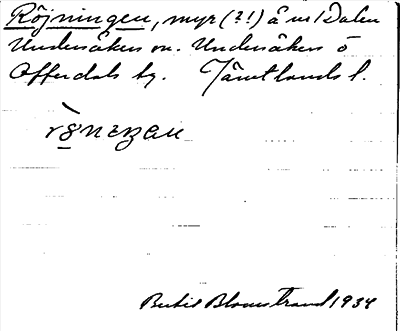 Röjningen, myr (?!) å nr 1 Dalen
Undersåkers sn. Undersåkers o
Offerdals tg. Jämtlands l.
Bertil Blomstrand 1934